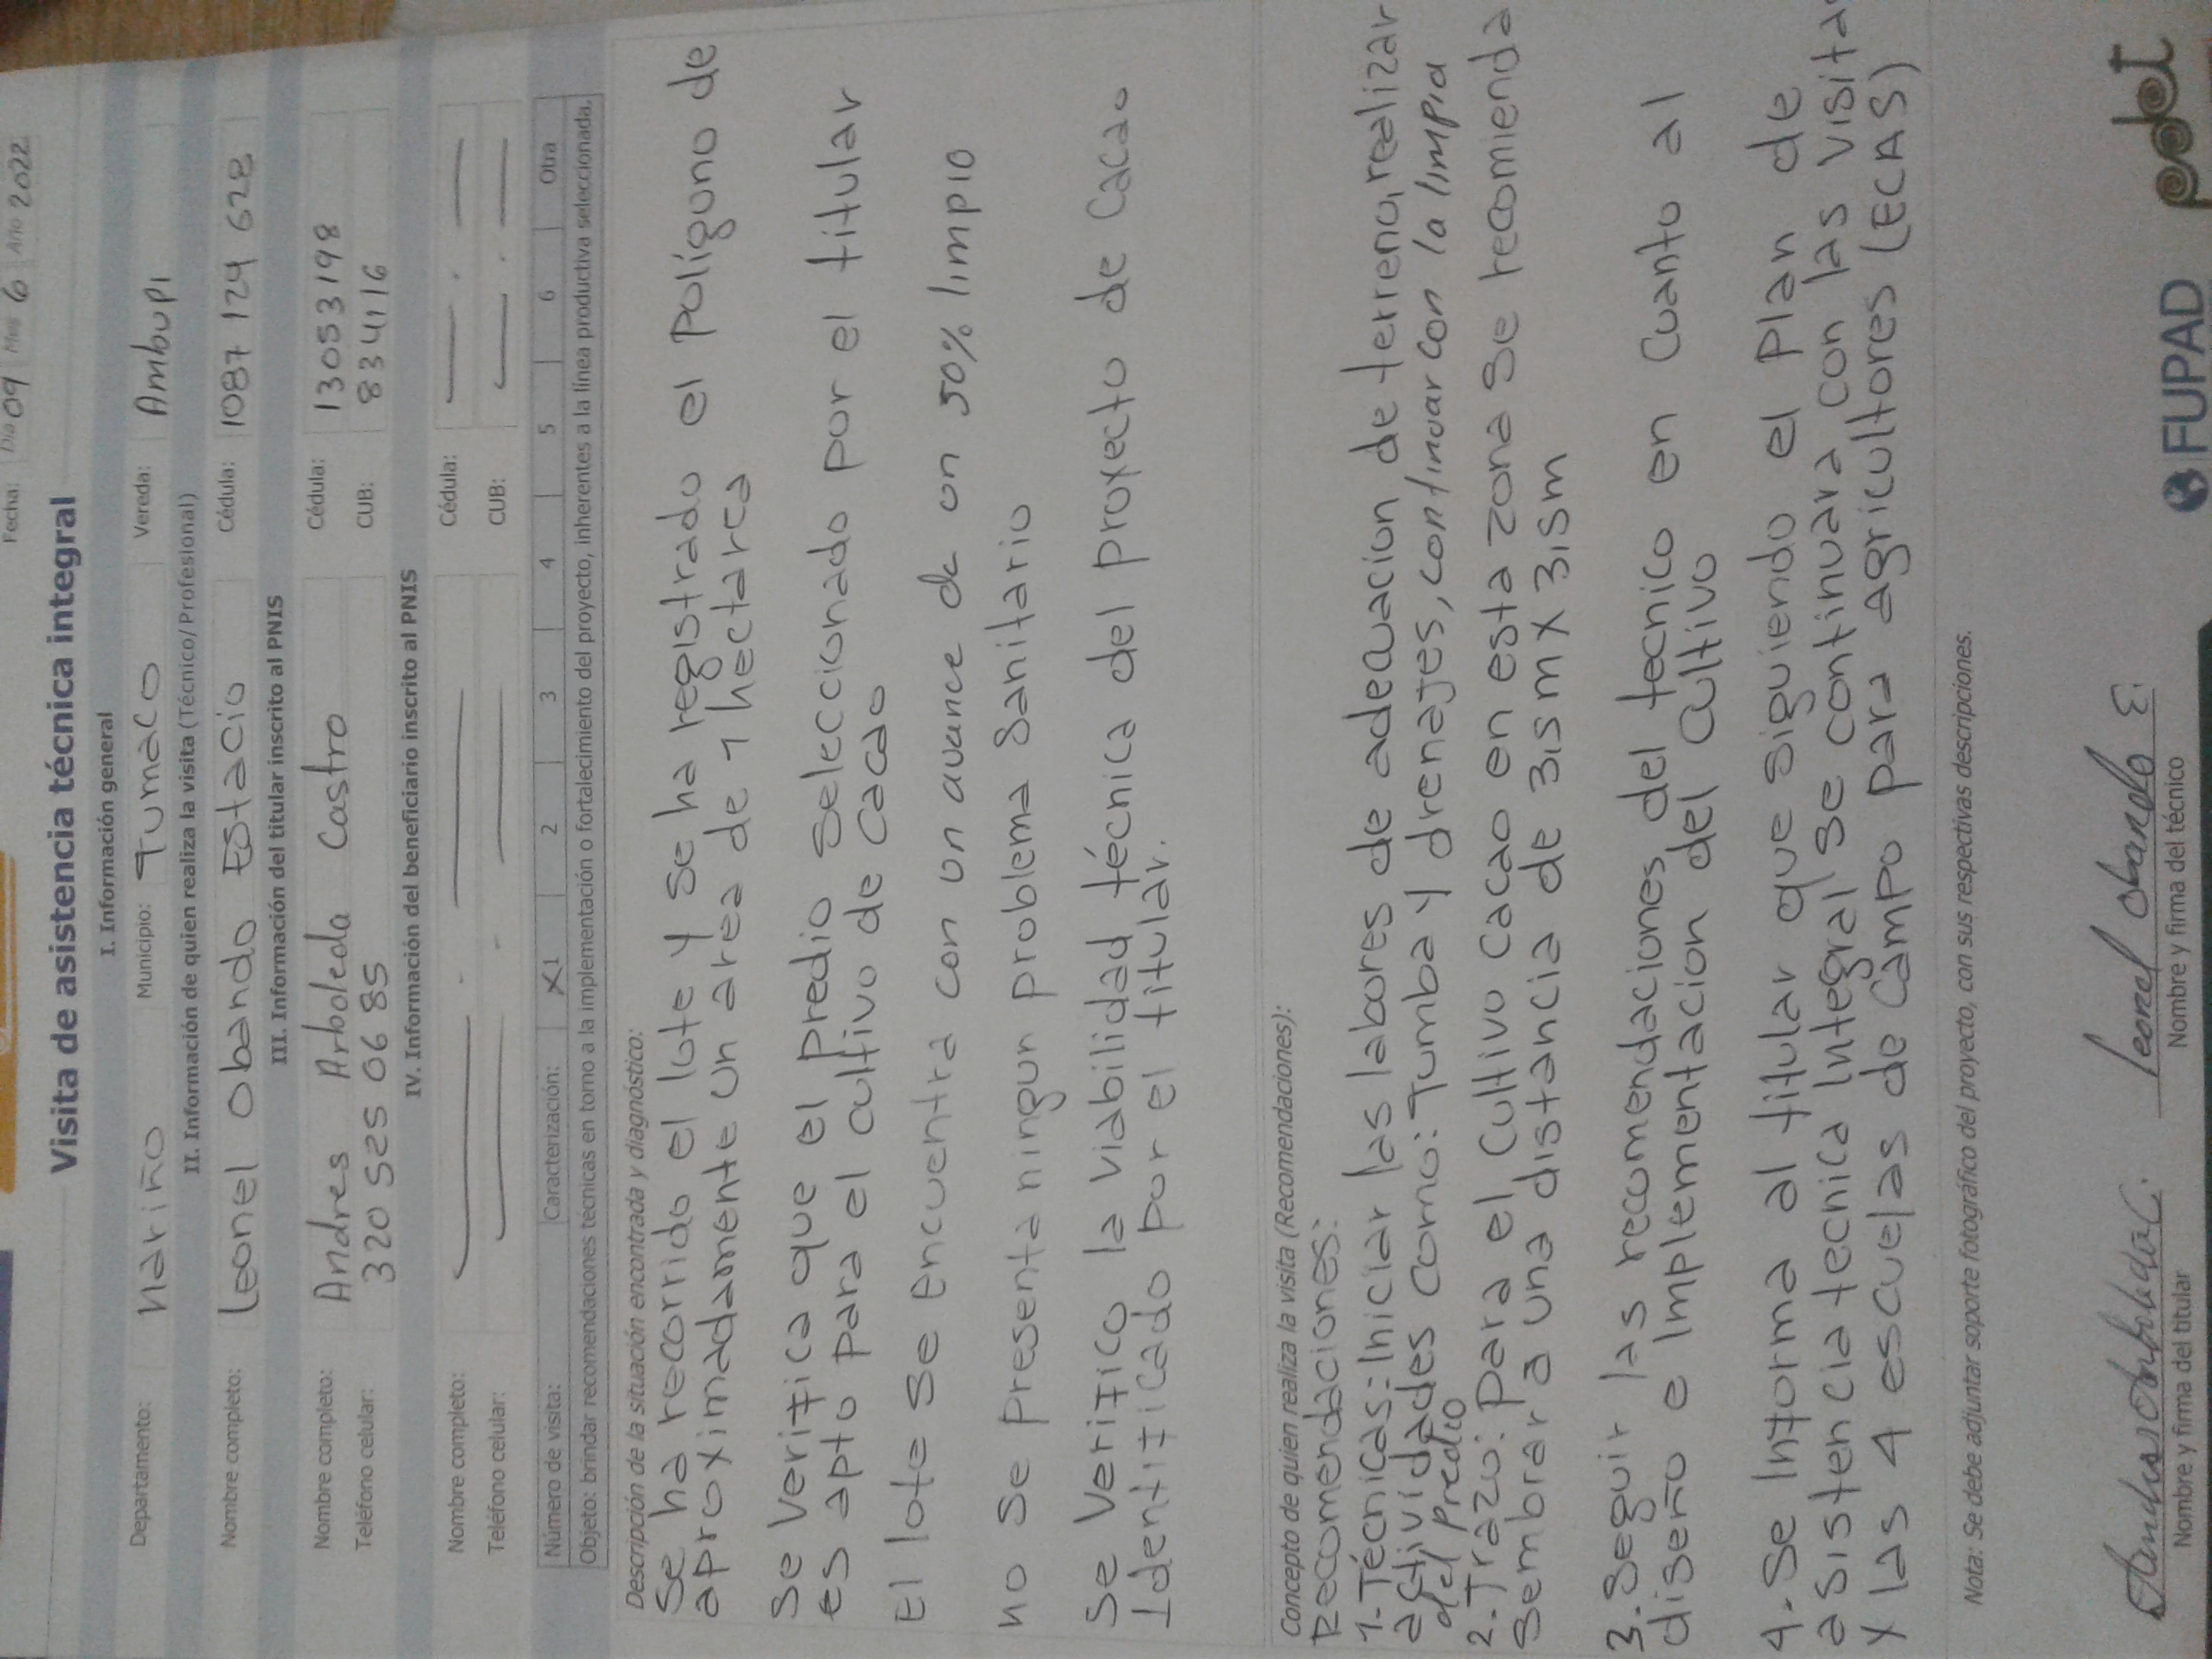 Fecha: Día 09 Mes 6 Año 2022
Visita de asistencia técnica integral
I. Información general
Departamento: Nariño Municipio: Tumaco Vereda: Ambupi
II. Información de quien realiza la visita (Técnico/Profesional)
Nombre completo: Leonel Obando Estacio Cédula: 1087 124 628
III. Información del titular inscrito al PNIS
Nombre completo: Andres Arboleda Castro Cédula: 13053198
Teléfono celular: 320 525 06 85 CUB: 834116
IV. Información del beneficiario inscrito al PNIS
Nombre completo: Cédula:
Teléfono celular: CUB:
Número de visita: Caracterización: X 1 2 3 4 5 6 Otra
Objeto: brindar recomendaciones tecnicas en torno a la implementación o fortalecimiento del proyecto, inherentes a la línea productiva seleccionada.
Descripción de la situación encontrada y diagnóstico:
Se ha recorrido el lote y se ha registrado el Poliguno de
aproximadamente un area de 1 hectarea
Se Verifica que el predio Seleccionado por el titular
es apto para el cultivo de cacao
El lote se encuentra con un avance de un 50% limpio
no se presenta ningun problema Sanitario
Se Verifico la viabilidad técnica del proyecto de Cacao
Identificado por el titular.
Concepto de quien realiza la visita (Recomendaciones):
Recomendaciones:
1-Técnicas: Iniciar las labores de adecuacion de terreno, realizar
actividades como: Tumba y drenajes, continuar con la limpia
del predio
2-Trazo: Para el Cultivo cacao en esta zona se recomienda
Sembrar a una distancia de 3,5m x 3,5m
3. Seguir las recomendaciones del tecnico en Cuanto al
diseño e Implementacion del cultivo
4.- Se Informa al titular que siguiendo el Plan de
asistencia tecnica Integral se continuara con las visita
y las 4 escuelas de Campo para agricultores (ECAS)
Nota: Se debe adjuntar soporte fotográfico del proyecto, con sus respectivas descripciones.
Andres Arboleda C. Leonel Obando E.
Nombre y firma del titular Nombre y firma del técnico
FUPAD pdet